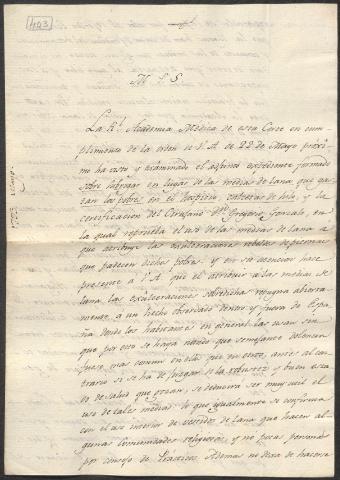 403
M. P. S.
La Rl. Academia Medica de esta Corte en cum-
plimiento de la orden de V. A. de 22 de Mayo proxi-
mo ha visto y examinado el adjunto expediente formado
sobre subrogar en lugar de las medias de lana, que gas-
tan los pobres en el Hospicio, calcetas de hilo, y la
certificacion del Cirujano Dn. Gregorio Gonzalo, en
la qual reprueba el uso de las medias de lana a
que atribuye las exulceraciones rebeldes de piernas
que padecen dichos pobres, y en su atencion hace
presente a V. A. que el atribuir a las medias de
lana las exulceraciones sobredichas repugna abierta-
mente a un hecho observado dentro y fuera de Espa-
ña donde los habitantes en general las usan sin
que por esto se haya notado que semejante dolencia
fuese mas comun en ellos que en otros, antes al con-
trario si se ha de juzgar de la robustez y buen esta-
do de salud que gozan, se deduciria ser muy util el
uso de tales medias: lo que igualmente se confirma
con el uso interior de vestidos de lana que hacen al-
gunas Comunidades religiosas, y no pocas personas
por consejo de Practicos. Ademas no dexa de hacerse